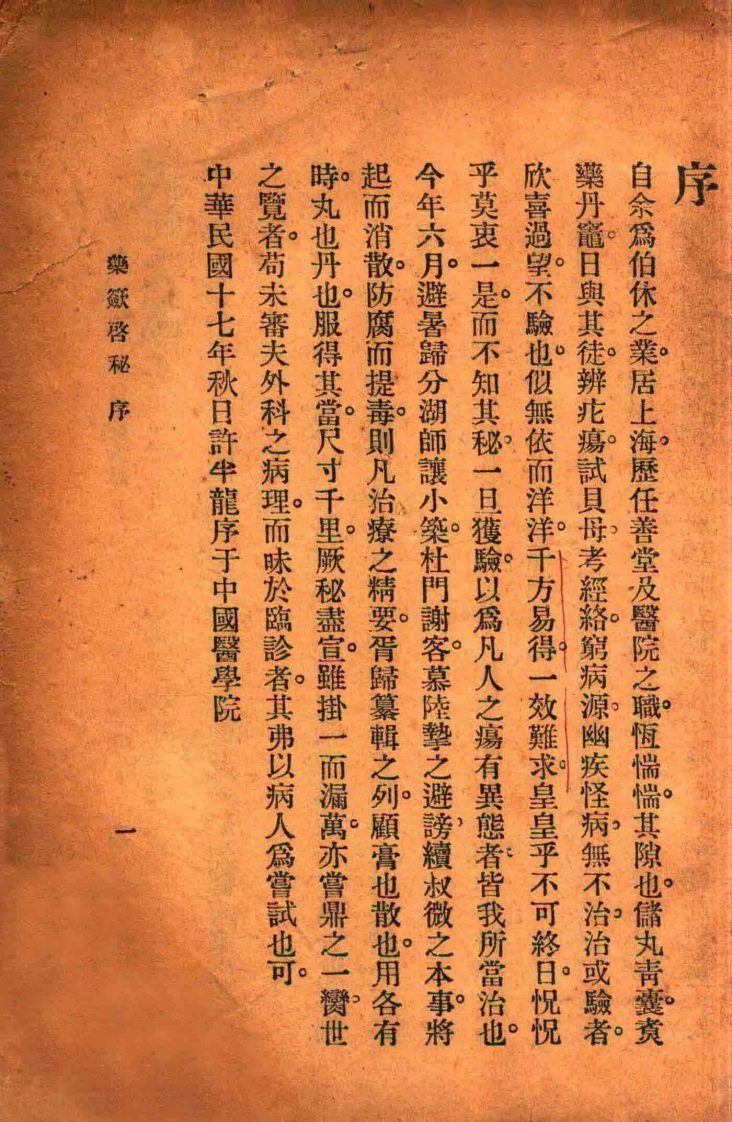 序
自余爲伯休之業。居上海。歷任善堂及醫院之職。恆惴惴其隙也。儲丸靑囊。賫
藥丹竈。日與其徒。辨疕瘍。試貝母。考經絡。窮病源。幽疾怪病。無不治。治或驗者。
欣喜過望。不驗也。似無依而洋洋。千方易得。一效難求。皇皇乎不可終日。怳怳
乎莫衷一是。而不知其秘。一旦獲驗。以爲凡人之瘍有異態者。皆我所當治也。
今年六月。避暑歸分湖師讓小築。杜門謝客。慕陸摯之避謗。續叔微之本事。將
起而消散。防腐而提毒。則凡治療之精要。胥歸纂輯之列。顧膏也散也。用各有
時。丸也丹也。服得其當。尺寸千里。厥秘盡宣。雖掛一而漏萬。亦嘗鼎之一臠。世
之覽者。苟未審夫外科之病理。而昧於臨診者。其弗以病人爲嘗試也可。
中華民國十七年秋日許半龍序于中國醫學院
藥籢啓秘 序
一